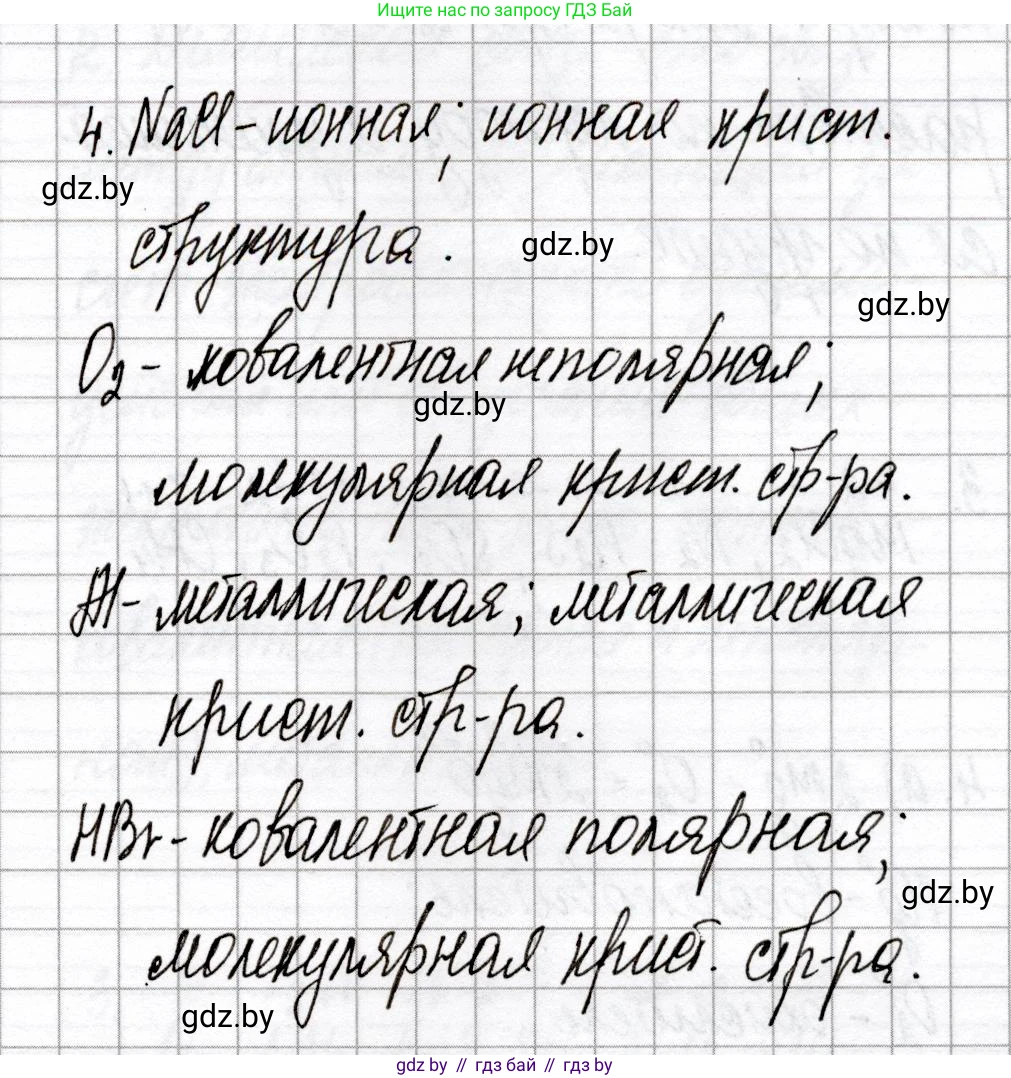 Ищите нас по запросу ГДЗ Бай
4. NaCl - ионная; ионная крист.
gdz.by
структура.
gdz.by
gdz.by
O₂ - ковалентная неполярная;
gdz.by
молекулярная крист. стр-ра.
Al - металлическая; металлическая
крист. стр-ра.
HBr - ковалентная полярная;
gdz.by
молекулярная крист. стр-ра.
gdz.by
gdz.by // гдз бай // gdz.by